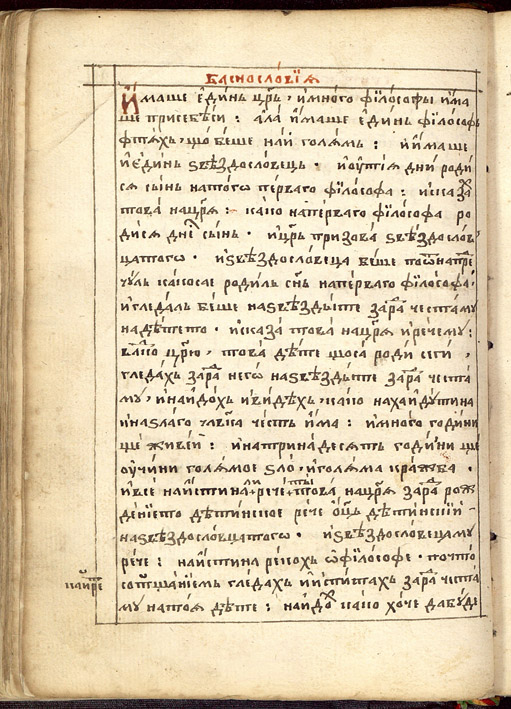 баснословїѧ
Имаше єдинь цр҃ь, имного фїлософы има
ше присебѣси : ала имаше єдинь фїлософь
фтѧхь, що беше най голѧмь : и имаше
и єдинь ѕвѣздословець · и оу тїѧ дни роди
сѧ сынь натогѡ перваго фїлософа : исказа
това нацрѧ : како наперваго фїлософа ро
дисѧ днⷭ҇ сынь · ицрь призова ѕвѣздослов
цатогѡ · иѕвѣздословеца беше
чуль какосае родиль снь наперваго фїлософа,
игледаль беше наѕвѣздыте зарⷣа честамꙋ
надѣтето · исказа това нацрѧ иречемꙋ :
цр҃ю, това дѣте щоса роди сеги,
гледахь зарⷣа него наѕвѣздыте зарⷣа честа
мꙋ, инайдохь ивидѣхь, како нахайдꙋтина
инаѕлаго чл҃вка честь има : имного години
ще живей : инатринадесѧть години ще
оучини голѧмое ѕло, иголѧма кражва ·
ивсе наистина рече това нацрѧ зарⷣа рож
денїето дѣтинское рече оц҃ь дѣтинскїй
наѕвѣздословцатого · иѕвѣздословецамꙋ
рече : наистина рекохь ѡфїлософе · почто
сотщанїемь гледахь ииспитахь зарⷣа честа
мꙋ натоѧ дѣте : найдоⷯ како хоче дабꙋде